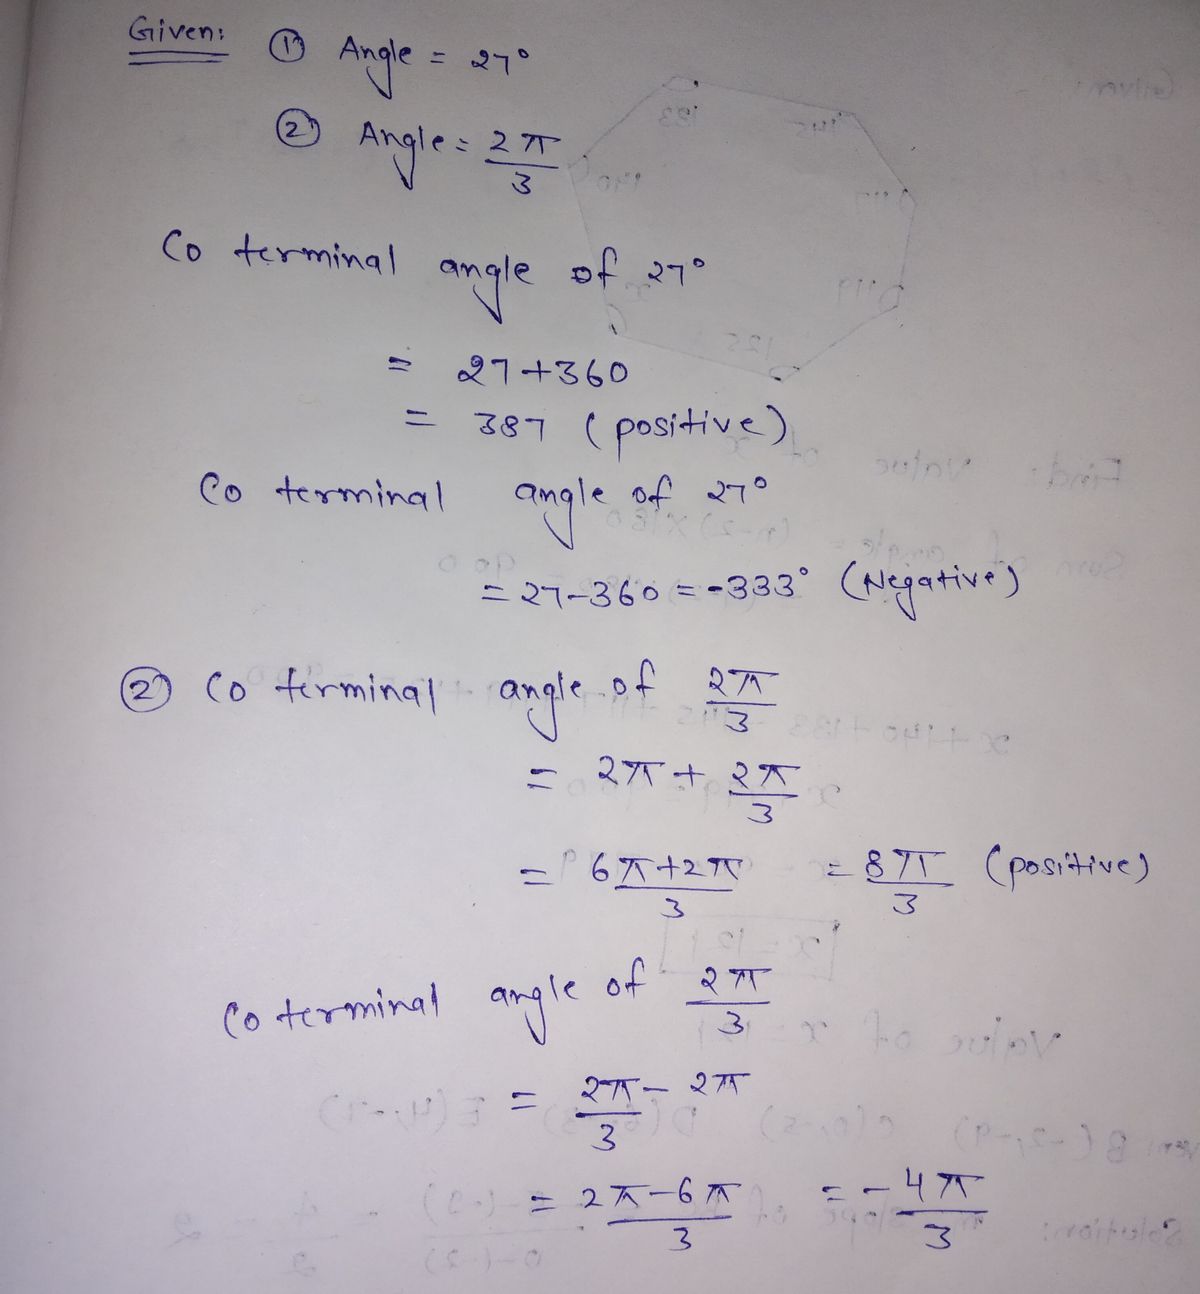 Given: ① Angle = 27°
② Angle = 2π/3
Co terminal angle of 27°
= 27+360
= 387 (positive)
Co terminal angle of 27°
= 27-360 = -333° (Negative)
② Co terminal angle of 2π/3
= 2π + 2π/3
= 6π+2π/3 = 8π/3 (positive)
Co terminal angle of 2π/3
= 2π/3 - 2π
= 2π-6π/3 = -4π/3